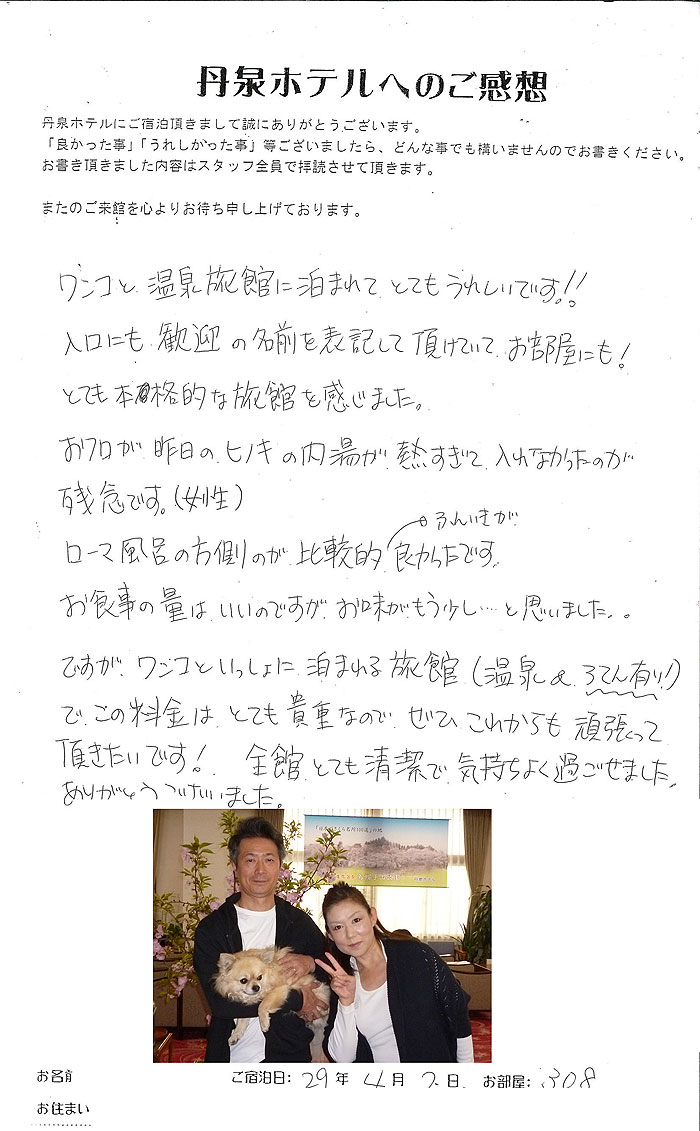 丹泉ホテルへのご感想
丹泉ホテルにご宿泊頂きまして誠にありがとうございます。
「良かった事」「うれしかった事」等ございましたら、どんな事でも構いませんのでお書きください。
お書き頂きました内容はスタッフ全員で拝読させて頂きます。
またのご来館を心よりお待ち申し上げております。
ワンコと、温泉旅館に泊まれて、とてもうれしいです!!
入口にも、歓迎の名前を表記して頂けていて、お部屋にも!
とても本格的な旅館を感じました。
おフロが、昨日の、ヒノキの内湯が、熱すぎて、入れなかったのが
残念です。(女性)
ふんいきが
ローマ風呂の方側のが、比較的良かったです。
お食事の量は、いいのですが、お味がもう少し…と思いました。
ですが、ワンコといっしょに、泊まれる旅館(温泉&ろてん有り!)
で、この料金は、とても貴重なので、ぜひ、これからも頑張って
頂きたいです!全館、とても清潔で、気持ちよく過ごせました。
ありがとうございました。
お名前
ご宿泊日: 29年 4月 2日 お部屋: 308
お住まい